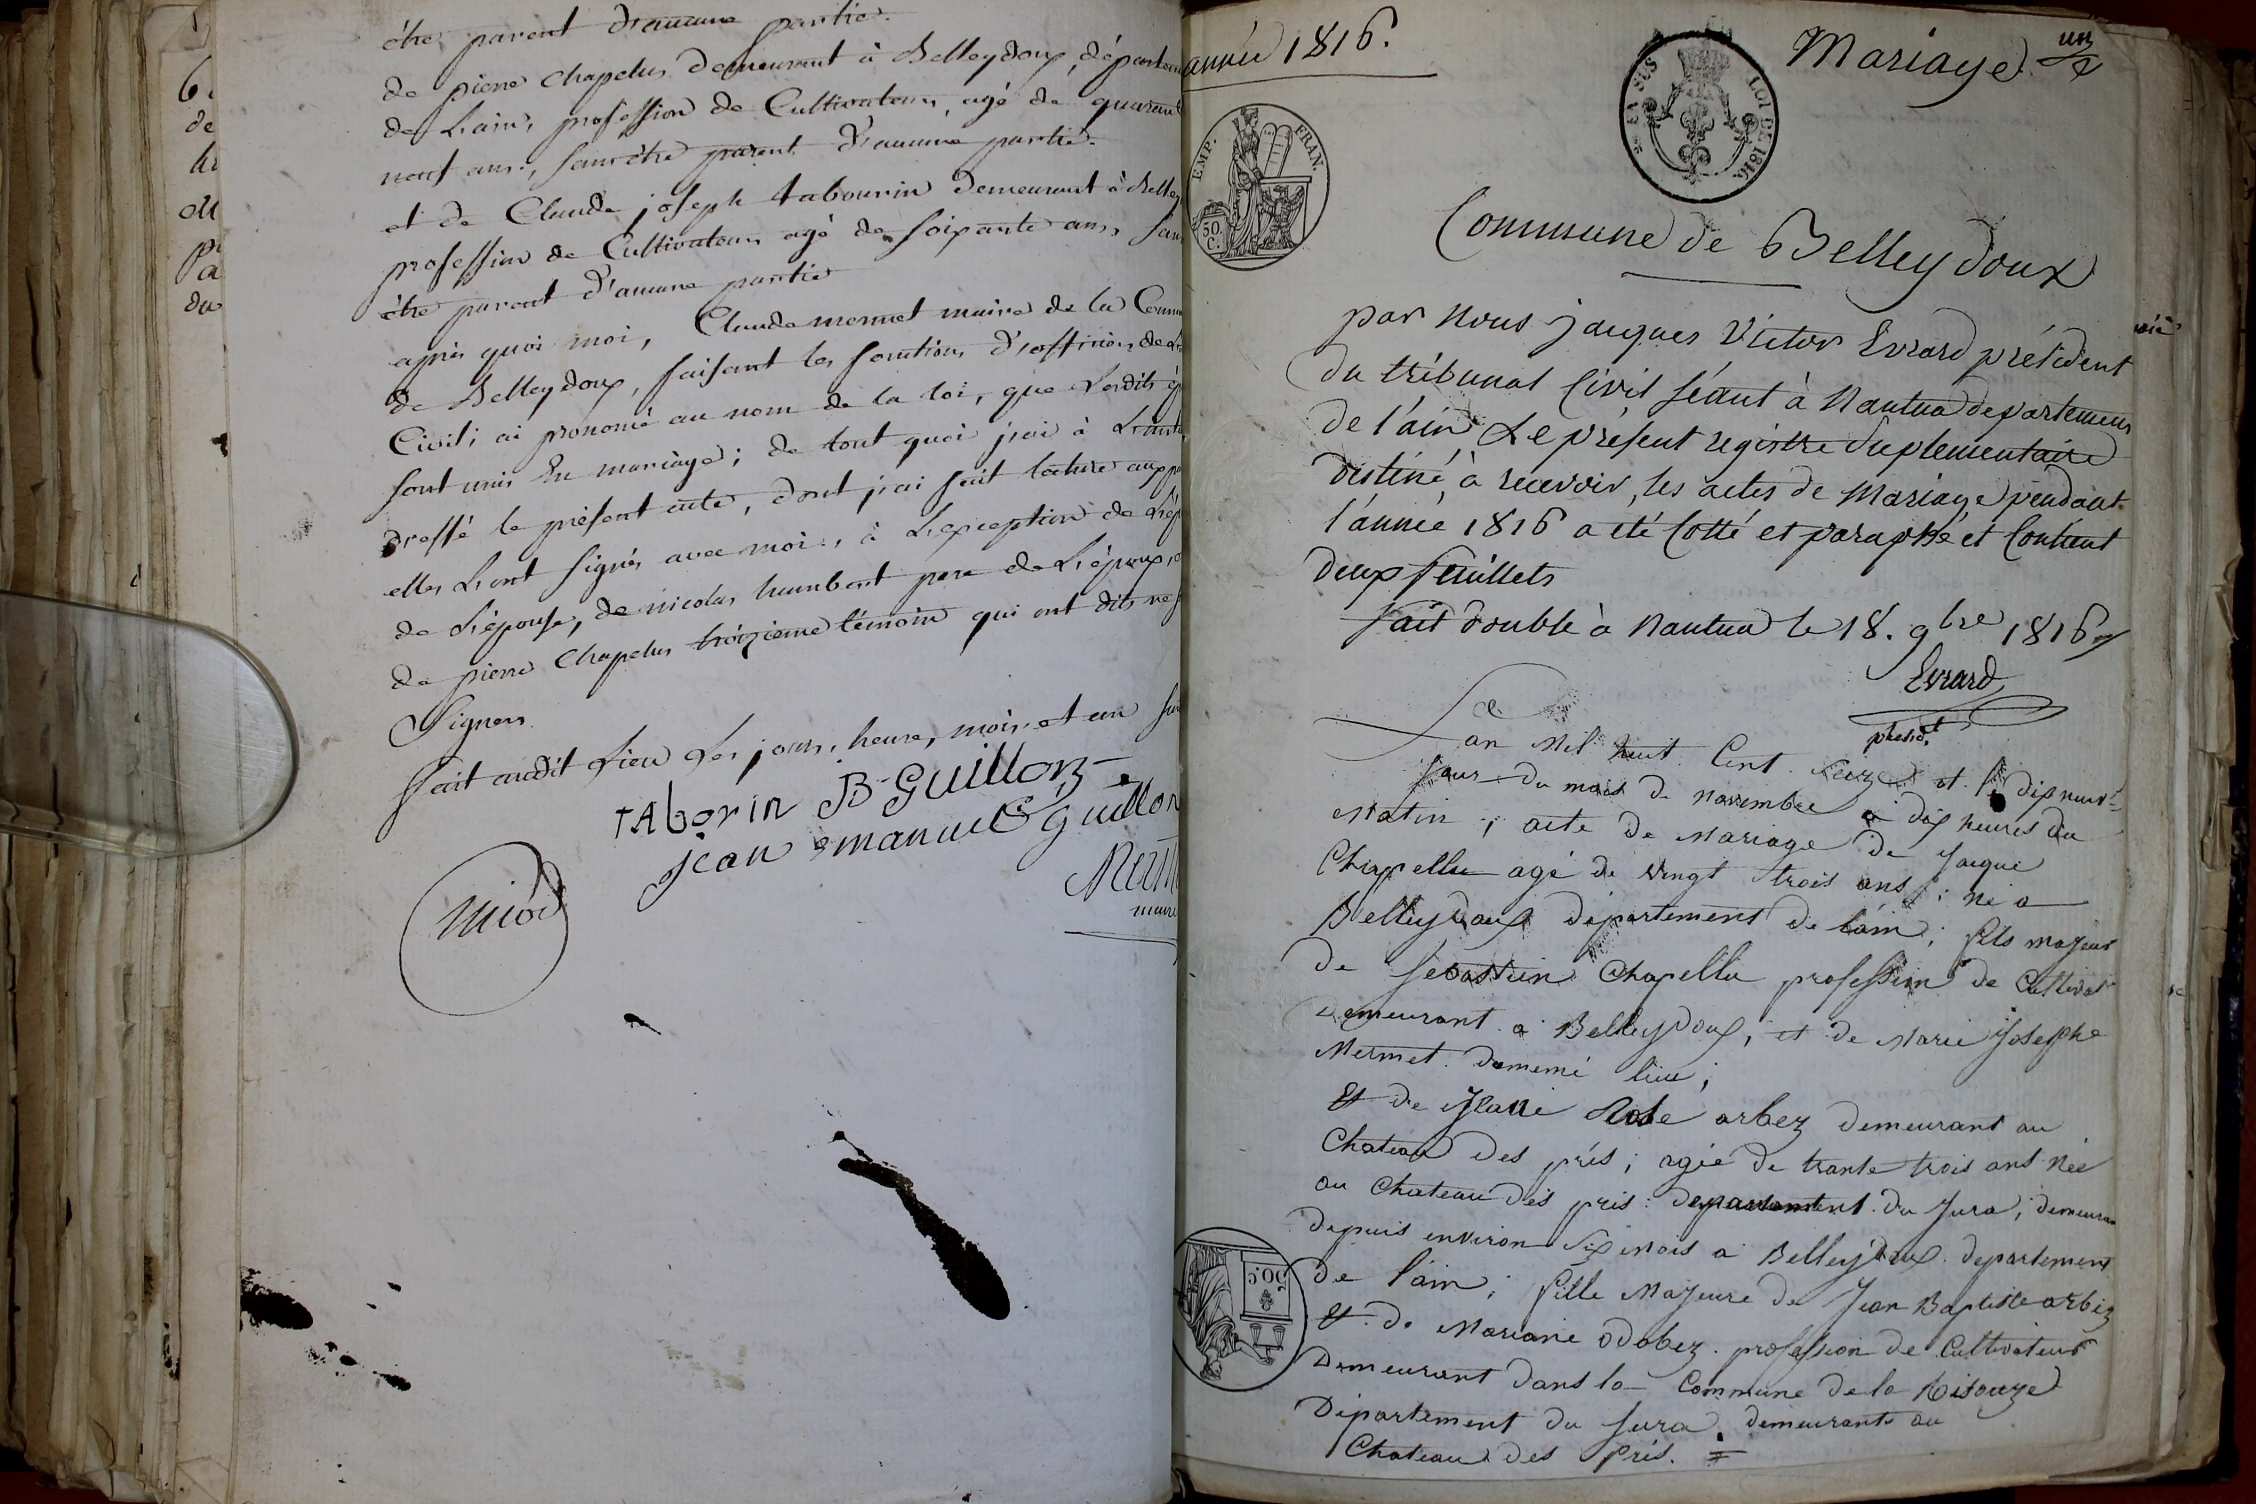 être parent d'aucune partie.
de pierre chapelus demeurant à Belleydoux, départem
de L'ain, profession de Cultivateur, agé de quarant
neuf ans, sans être parent d'aucune partie.
et de Claude joseph tabourin demeurant à Belley
profession de Cultivateur agé de soixante ans, san
être parent d'aucune partie
après quoi moi, Claude mermet maire de la Comm
de Belleydoux, faisant les fonctions d'officier de L
Civil; ai prononcé au nom de la loi, que Lesdits é
sont unis En mariage; de tout quoi j'ai à L'inst
dressé le présent acte, dont j'ai fait lecture aux p
elles L'ont signés avec moi, à L'exception de L'ép
de L'épouse, de nicolas humbert pere de L'époux, e
de pierre Chapelus troizieme témoin qui ont dits ne s
Signer.
fait audit Lieu Les jours, heure, mois et an sus
tAborin B Guillorz
jean emanuel guillon
miod
maire
6
de
pr
a
du
année 1816.
Mariage. un
EMP. FRAN.
50. C.
LOI DE 1816.
Commune de Belleydoux
par Nous jacques Victor Evrard président
du tribunal Civil séant à Nantua departement
de l'ain, Le présent registre suplementaire
destiné à recevoir, les actes de Mariage pendant
l'année 1816 a été Cotté et paraphé et Contient
deux feuillets
fait double à Nantua le 18. 9bre 1816
Evrard
présidt
Lan Mil huit Cent Seize et le dixneuf
jour du mois de novembre a dix heures du
Matin; acte de Mariage de Jaque
Chapellu agé de vingt trois ans; né a
Belleydoux département de lain; fils majeur
de Sebastien Chapellu profession de Cultivat
demeurant a Belleydoux; et de Marie Josephe
Mermet du memé lieu;
Et de Marie Rose arbez demeurant au
Chateau des prés; agée de trante trois ans Née
au Chateau des prés departement du Jura, demeuran
depuis environ six mois a Belleydoux departement
de lain; fille Majeure de Jean Baptiste arbez
Et de Mariane odobez profession de Cultivateur
Demeurant dans la Commune de la Risouze
Département du Jura demeurants au
Chateau des prés.
50.C